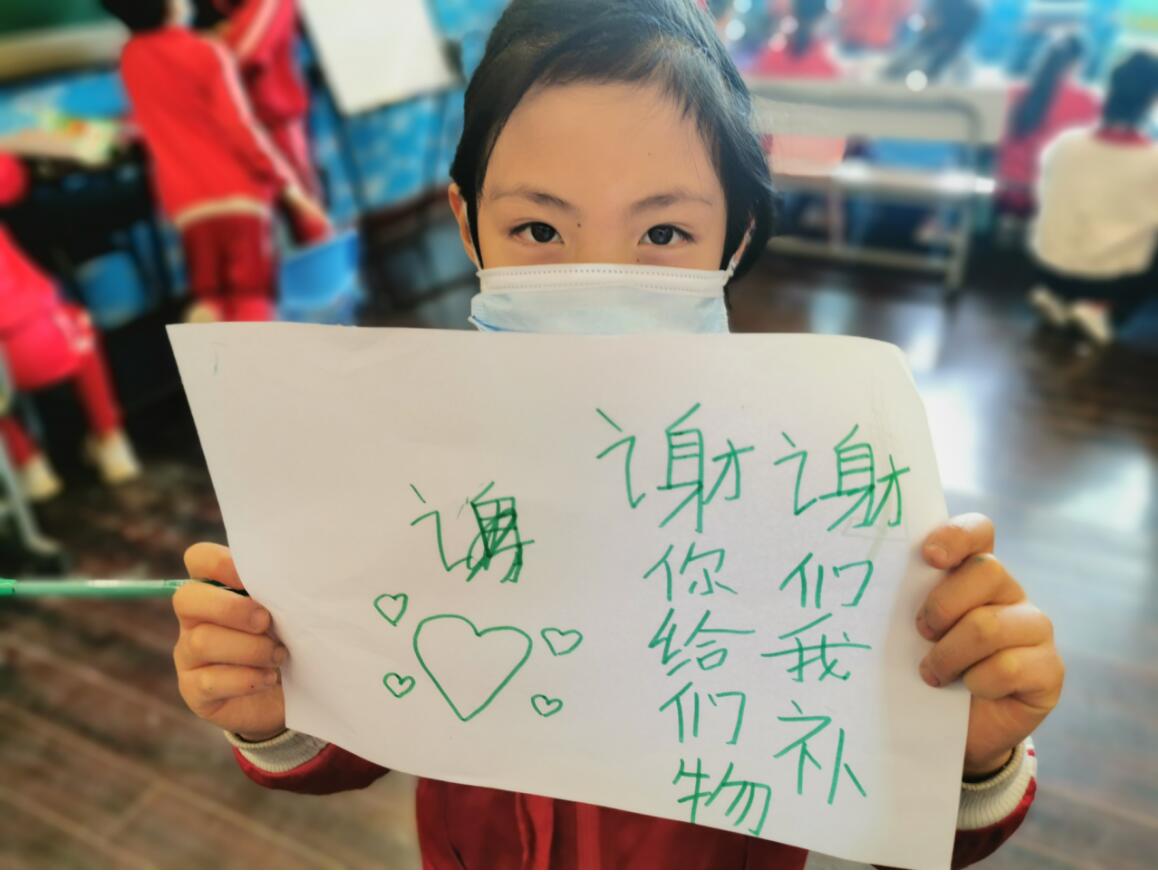 谢谢
你们
给我
们补
物